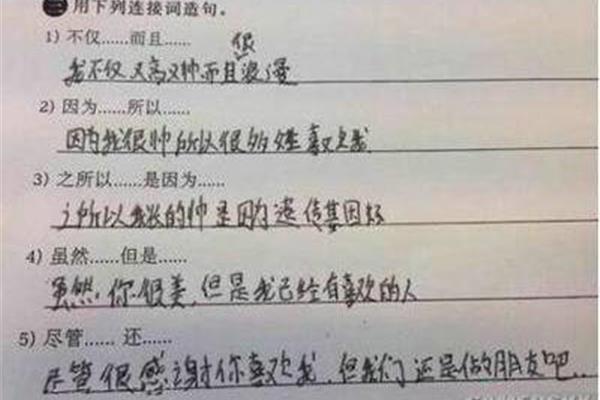 三 用下列连接词造句。
1) 不仅……而且……
很
我不仅又高又帅而且浪漫
2) 因为……所以……
因为我很帅所以很多姓喜欢我
3) 之所以……是因为……
之所以我长的帅是因为遗传基因好
4) 虽然……但是……
虽然,你很美,但是我已经有喜欢的人
5) 尽管…… 还……
尽管很感谢你喜欢我,但我们还是做朋友吧..